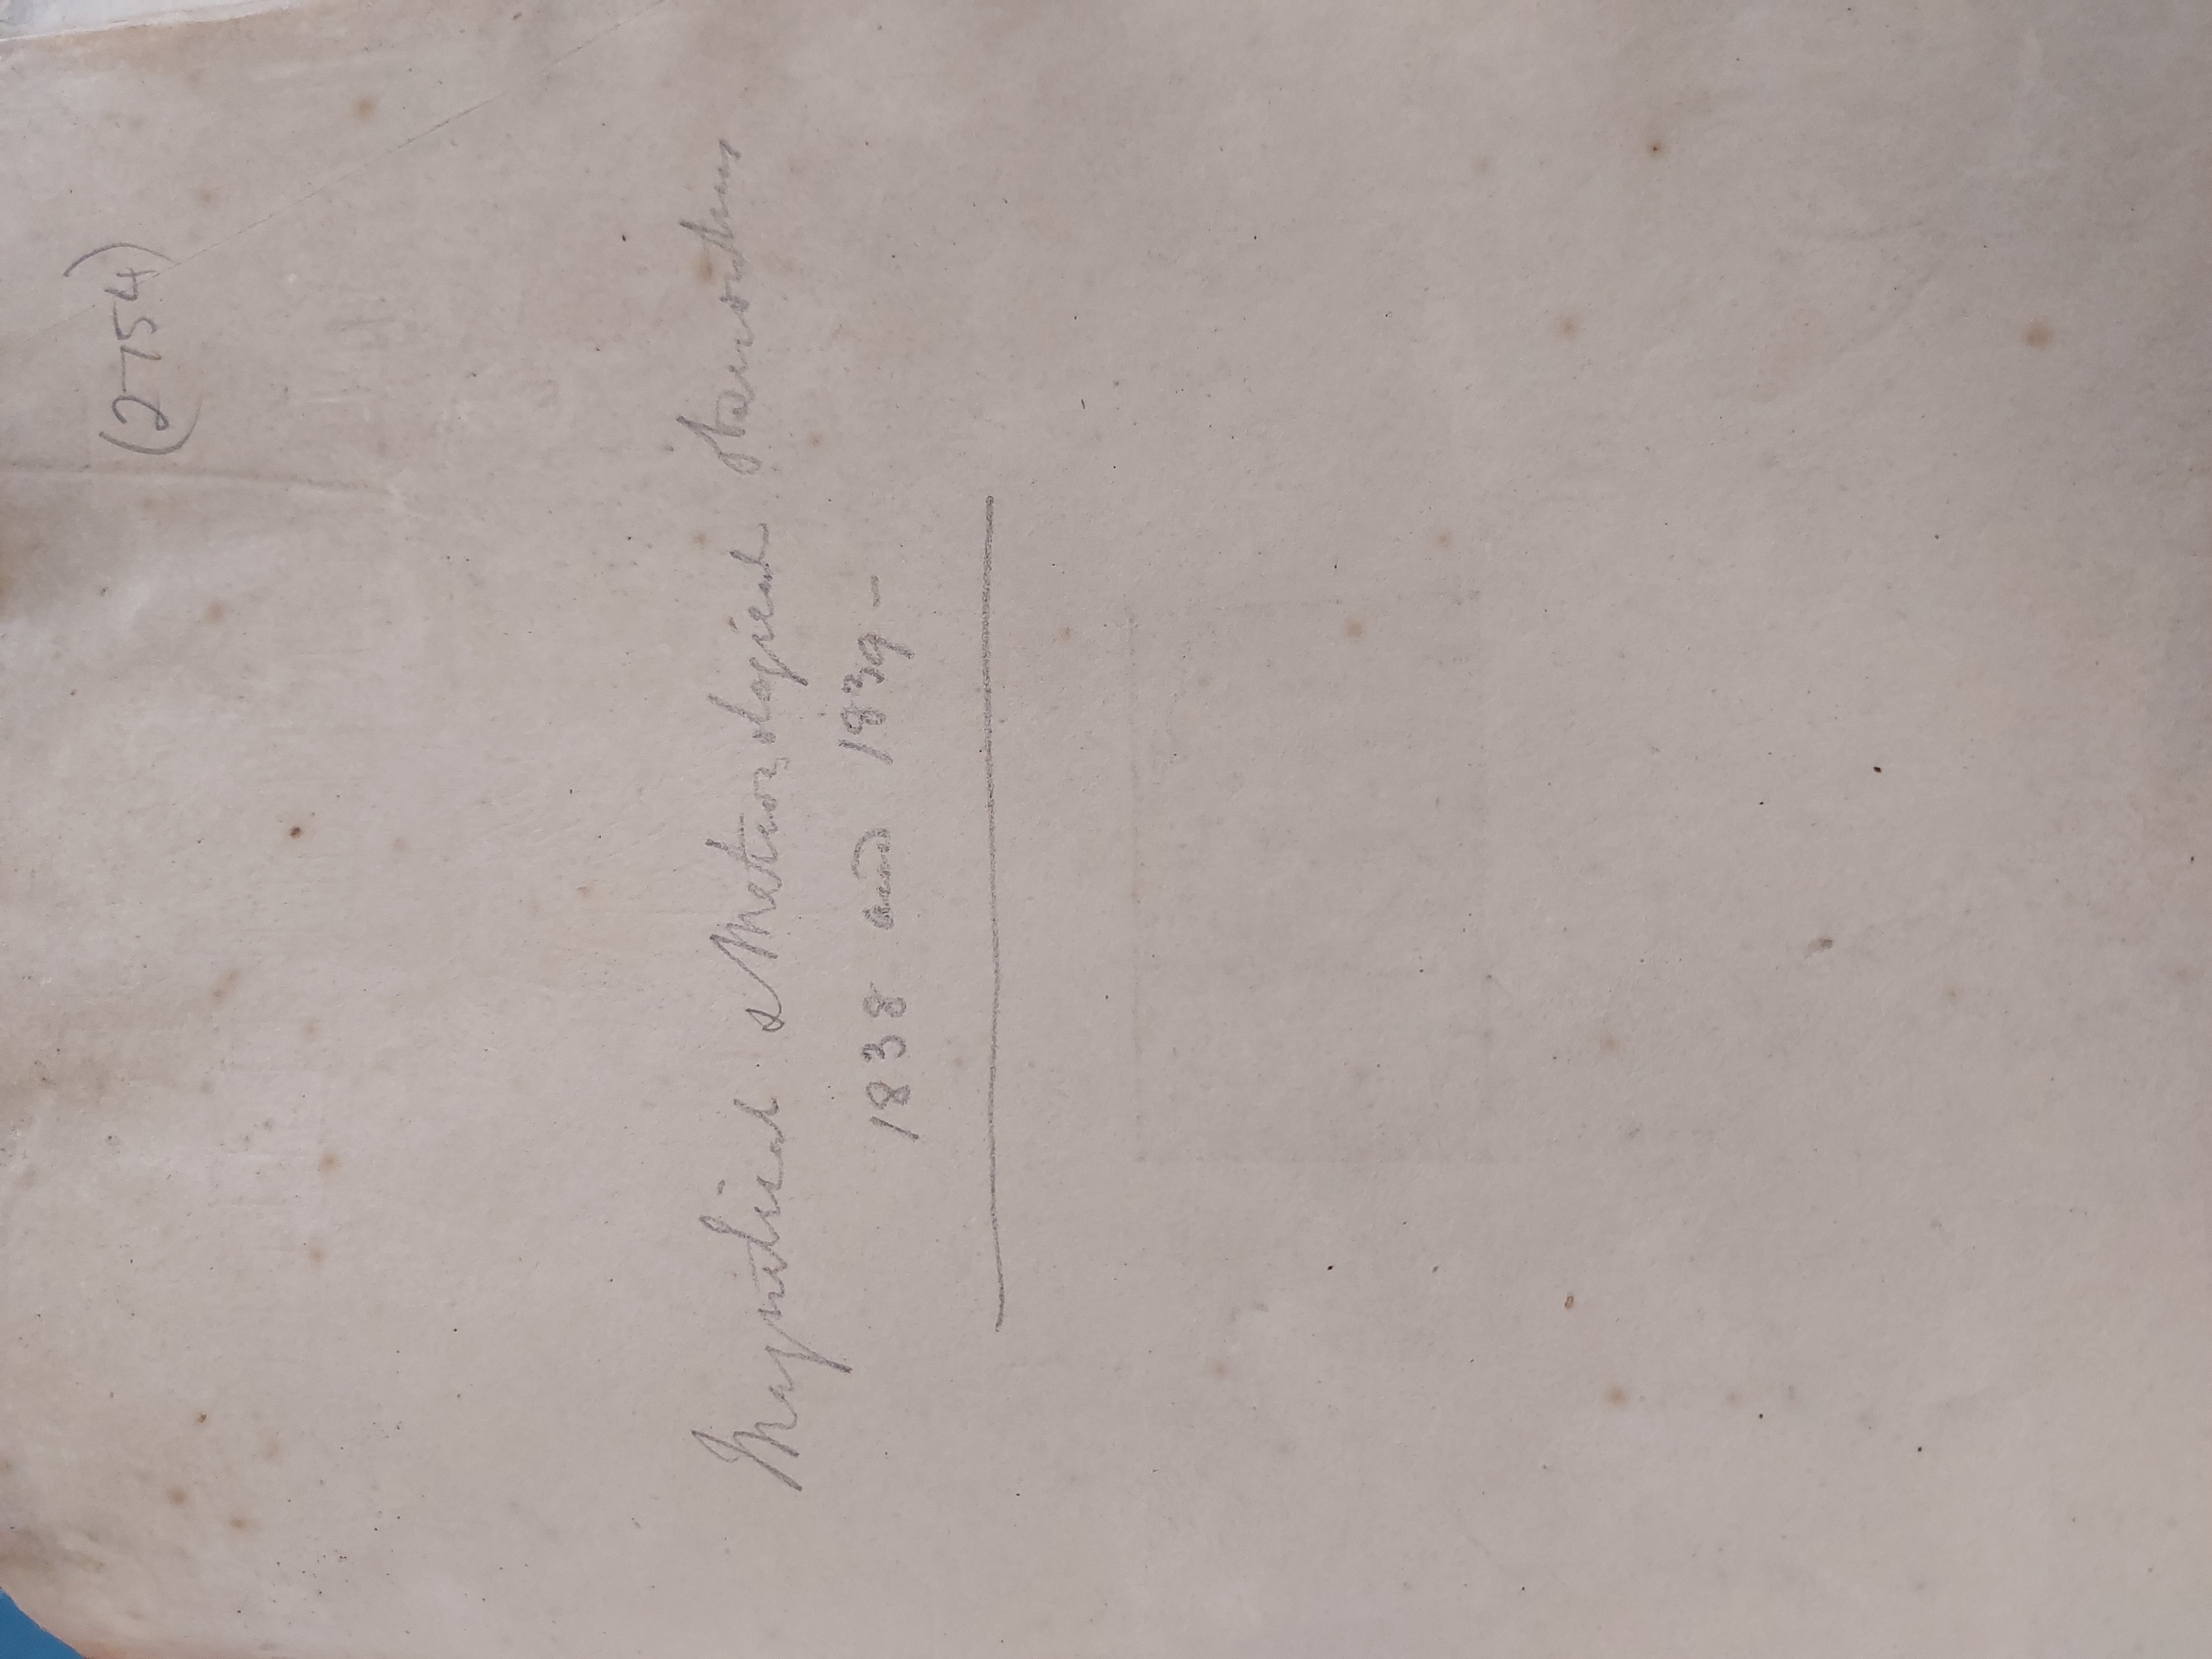 (2754)
Magnetical & Meteorological observations
1838 and 1839 -